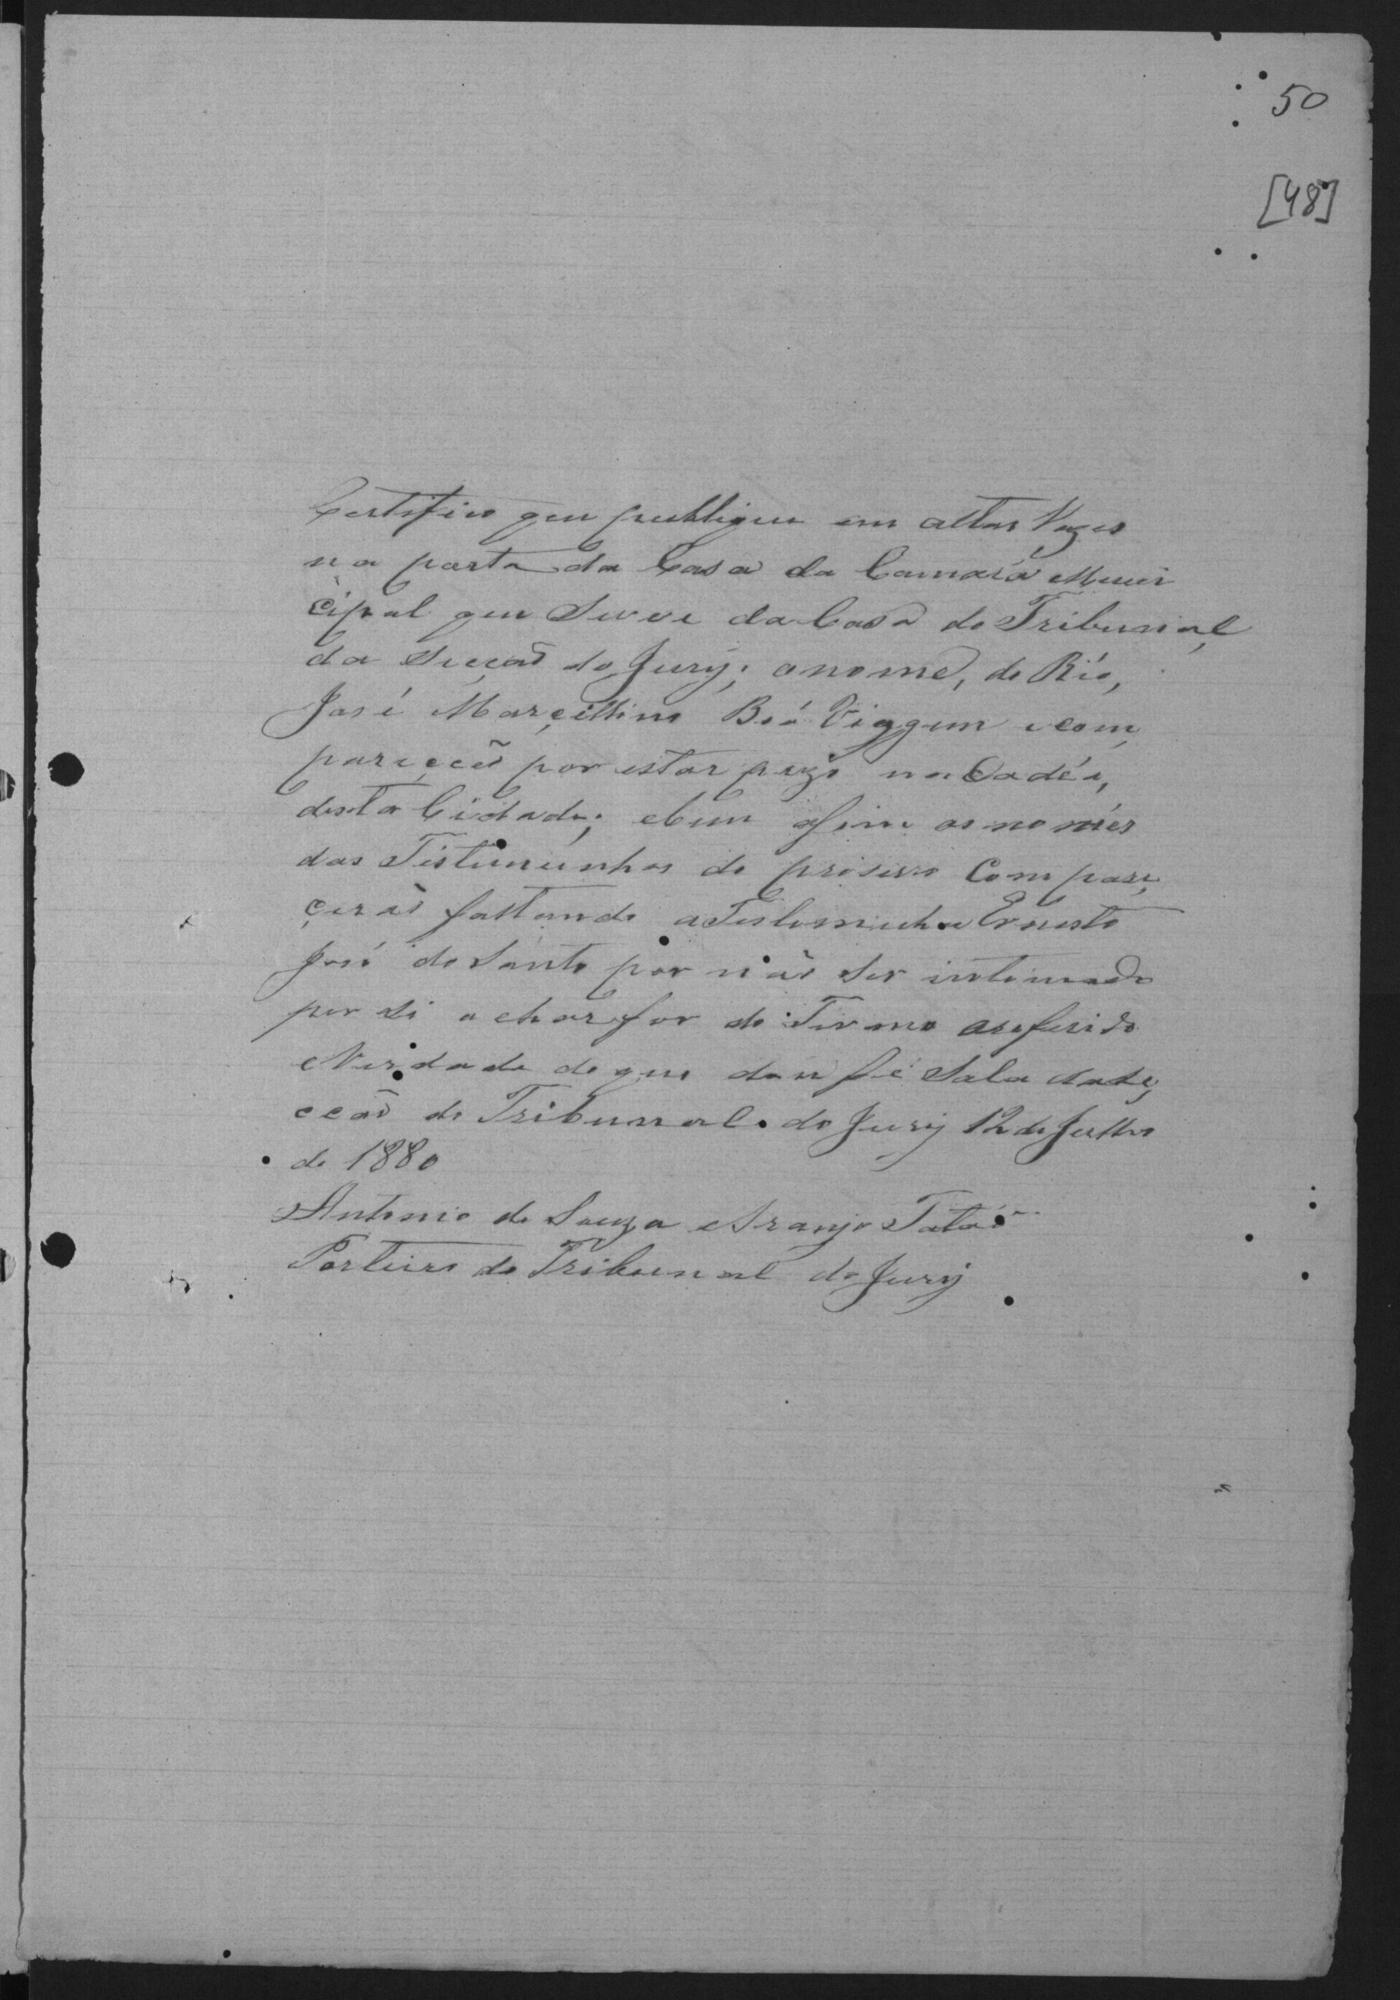 50
[48]
Certifico que publiquei em altas Vozes
na porta da Casa da Camara Muni
cipal que Serve da Casa do Tribunal
da Secçaõ do Jury; o nome, do Réo,
José Marçillino e com,
pareceó por estar prezo na Cadéa,
desta Cidade; e bem asim os nomes
das Testemunhas do proseço Compare,
çeraõ faltando a Testemunha Ernesto
José do Santo por não Ser intimado
por si achar for do Termo oreferido
e Verdade de que dou fé Sala da Se,
ccaõ do Tribunal do Jury 12 de Julho
de 1880
Antonio de Souza Araujo Tatão
Porteiro do Tribunal do Jury